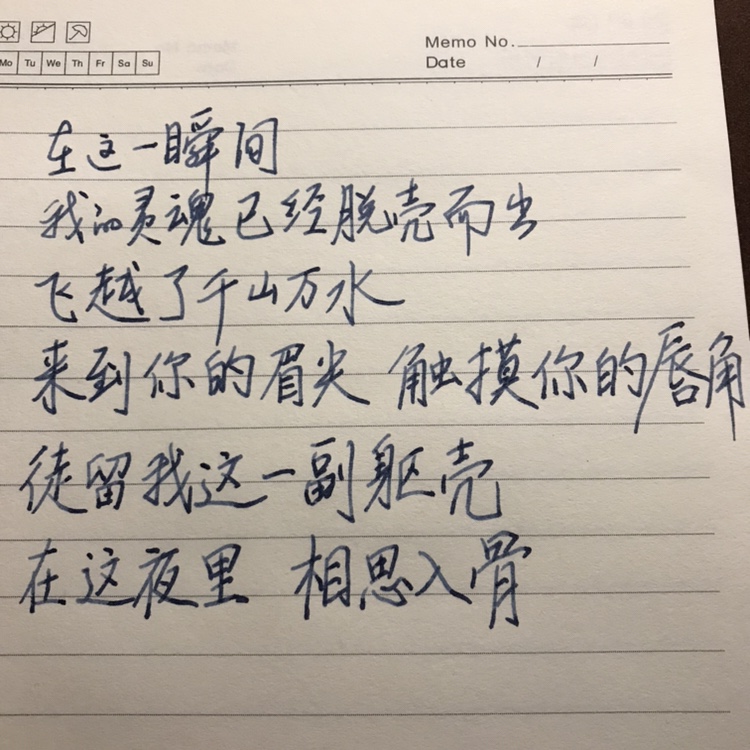 Memo No.
Mo Tu We Th Fr Sa Su
Date / /
在这一瞬间
我的灵魂已经脱壳而出
飞越了千山万水
来到你的眉尖 触摸你的唇角
徒留我这一副躯壳
在这夜里 相思入骨